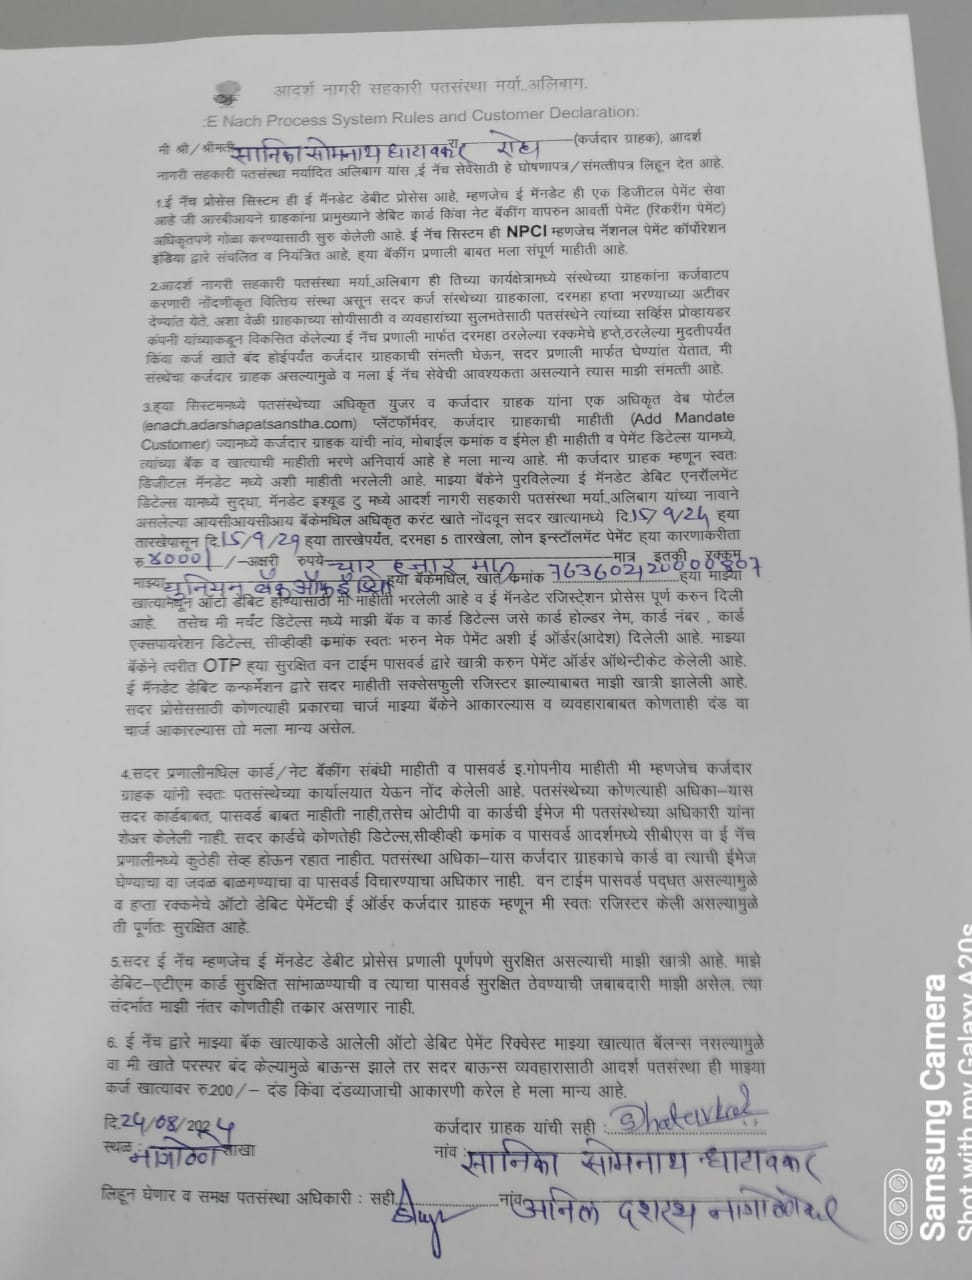 आदर्श नागरी सहकारी पतसंस्था मर्या..अलिबाग.
:E Nach Process System Rules and Customer Declaration:
मी श्री/श्रीमती सानिका सोमनाथ धाटावकर रा रोहा (कर्जदार ग्राहक), आदर्श
नागरी सहकारी पतसंस्था मर्यादित अलिबाग यांस ,ई नॅच सेवेसाठी हे घोषणापत्र/संमत्तीपत्र लिहून देत आहे.
1.ई नॅच प्रोसेस सिस्टम ही ई मॅनडेट डेबीट प्रोसेस आहे. म्हणजेच ई मॅनडेट ही एक डिजीटल पेमेंट सेवा
आहे जी आरबीआयने ग्राहकांना प्रामुख्याने डेबिट कार्ड किंवा नेट बॅकींग वापरुन आवर्ती पेमेंट (रिकरींग पेमेंट)
अधिकृतपणे गोळा करण्यासाठी सुरु केलेली आहे. ई नॅच सिस्टम ही NPCI म्हणजेच नॅशनल पेमेंट कॉर्पोरेशन
इंडिया द्वारे संचलित व नियंत्रित आहे, ह्या बॅकींग प्रणाली बाबत मला संपूर्ण माहीती आहे.
2.आदर्श नागरी सहकारी पतसंस्था मर्या..अलिबाग ही तिच्या कार्यक्षेत्रामध्ये संस्थेच्या ग्राहकांना कर्जवाटप
करणारी नोंदणीकृत वित्तिय संस्था असून सदर कर्ज संस्थेच्या ग्राहकाला, दरमहा हप्ता भरण्याच्या अटीवर
देण्यांत येते. अशा वेळी ग्राहकाच्या सोयीसाठी व व्यवहारांच्या सुलभतेसाठी पतसंस्थेने त्यांच्या सर्व्हिस प्रोव्हायडर
कंपनी यांच्याकडून विकसित केलेल्या ई नॅच प्रणाली मार्फत दरमहा ठरलेल्या रक्कमेचे हप्ते,ठरलेल्या मुदतीपर्यंत
किंवा कर्ज खाते बंद होईपर्यंत कर्जदार ग्राहकाची संमत्ती घेऊन, सदर प्रणाली मार्फत घेण्यांत येतात, मी
संस्थेचा कर्जदार ग्राहक असल्यामुळे व मला ई नॅच सेवेची आवश्यकता असल्याने त्यास माझी संमत्ती आहे.
3.ह्या सिस्टममध्ये पतसंस्थेच्या अधिकृत युजर व कर्जदार ग्राहक यांना एक अधिकृत वेब पोर्टल
(enach.adarshapatsanstha.com) प्लॅटफॉर्मवर, कर्जदार ग्राहकाची माहीती (Add Mandate
Customer) ज्यामध्ये कर्जदार ग्राहक यांची नांव, मोबाईल कमांक व ईमेल ही माहीती व पेमेंट डिटेल्स यामध्ये,
त्यांच्या बॅक व खात्याची माहीती भरणे अनिवार्य आहे हे मला मान्य आहे. मी कर्जदार ग्राहक म्हणून स्वतः
डिजीटल मॅनडेट मध्ये अशी माहीती भरलेली आहे. माझ्या बॅकेने पुरविलेल्या ई मॅनडेट डेबिट एनरॉलमेंट
डिटेल्स यामध्ये सुद्धा, मॅनडेट इश्यूड टु मध्ये आदर्श नागरी सहकारी पतसंस्था मर्या..अलिबाग यांच्या नावाने
असलेल्या आयसीआयसीआय बॅकेमधिल अधिकृत करंट खाते नोंदवून सदर खात्यामध्ये दि.15/9/24 ह्या
तारखेपासून दि.15/9/29 ह्या तारखेपर्यंत, दरमहा 5 तारखेला, लोन इन्स्टॉलमेंट पेमेंट ह्या कारणाकरीता
रु ४०००/ /-अक्षरी रुपये चार हजार मात्र मात्र इतकी रक्कम
माझ्या युनियन बँक ऑफ इंडिया ह्या बॅकेमधिल, खाते कमांक 763602120000807 ह्या माझ्या
खात्यामधून ऑटो डेबिट होण्यासाठी मी माहीती भरलेली आहे व ई मॅनडेट रजिस्ट्रेशन प्रोसेस पूर्ण करुन दिली
आहे. तसेच मी मर्चंट डिटेल्स मध्ये माझी बॅक व कार्ड डिटेल्स जसे कार्ड होल्डर नेम, कार्ड नंबर , कार्ड
एक्सपायरेशन डिटेल्स, सीव्हीव्ही कमांक स्वतः भरुन मेक पेमेंट अशी ई ऑर्डर(आदेश) दिलेली आहे. माझ्या
बॅकेने त्वरीत OTP ह्या सुरक्षित वन टाईम पासवर्ड द्वारे खात्री करुन पेमेंट ऑर्डर ऑथेन्टीकेट केलेली आहे.
ई मॅनडेट डेबिट कन्फर्मेशन द्वारे सदर माहीती सक्सेसफुली रजिस्टर झाल्याबाबत माझी खात्री झालेली आहे.
सदर प्रोसेससाठी कोणत्याही प्रकारचा चार्ज माझ्या बॅकेने आकारल्यास व व्यवहाराबाबत कोणताही दंड वा
चार्ज आकारल्यास तो मला मान्य असेल.
4.सदर प्रणालीमधिल कार्ड/नेट बॅकींग संबंधी माहीती व पासवर्ड इ.गोपनीय माहीती मी म्हणजेच कर्जदार
ग्राहक यांनी स्वतः पतसंस्थेच्या कार्यालयात येऊन नोंद केलेली आहे. पतसंस्थेच्या कोणत्याही अधिका-यास
सदर कार्डबाबत, पासवर्ड बाबत माहीती नाही,तसेच ओटीपी वा कार्डची ईमेज मी पतसंस्थेच्या अधिकारी यांना
शेअर केलेली नाही. सदर कार्डचे कोणतेही डिटेल्स,सीव्हीव्ही कमांक व पासवर्ड आदर्शमध्ये सीबीएस वा ई नॅच
प्रणालीमध्ये कुठेही सेव्ह होऊन रहात नाहीत. पतसंस्था अधिका-यास कर्जदार ग्राहकाचे कार्ड वा त्याची ईमेज
घेण्याचा वा जवळ बाळगण्याचा वा पासवर्ड विचारण्याचा अधिकार नाही. वन टाईम पासवर्ड पद्धत असल्यामुळे
व हप्ता रक्कमेचे ऑटो डेबिट पेमेंटची ई ऑर्डर कर्जदार ग्राहक म्हणून मी स्वतः रजिस्टर केली असल्यामुळे
ती पूर्णतः सुरक्षित आहे.
5.सदर ई नॅच म्हणजेच ई मॅनडेट डेबीट प्रोसेस प्रणाली पूर्णपणे सुरक्षित असल्याची माझी खात्री आहे. माझे
डेबिट-एटीएम कार्ड सुरक्षित सांभाळण्याची व त्याचा पासवर्ड सुरक्षित ठेवण्याची जबाबदारी माझी असेल. त्या
संदर्भात माझी नंतर कोणतीही तकार असणार नाही.
6. ई नॅच द्वारे माझ्या बॅक खात्याकडे आलेली ऑटो डेबिट पेमेंट रिक्वेस्ट माझ्या खात्यात बॅलन्स नसल्यामुळे
वा मी खाते परस्पर बंद केल्यामुळे बाऊन्स झाले तर सदर बाऊन्स व्यवहारासाठी आदर्श पतसंस्था ही माझ्या
कर्ज खात्यावर रु.200/- दंड किंवा दंडव्याजाची आकारणी करेल हे मला मान्य आहे.
दि.24/08/2024 कर्जदार ग्राहक यांची सही : Dhatavkar
स्थळ : नागोठणे शाखा नांव : सानिका सोमनाथ धाटावकर
लिहून घेणार व समक्ष पतसंस्था अधिकारी : सही. नांव अनिल दशरथ नागोठणेकर
Samsung Camera
Shot with my Galaxy A20s